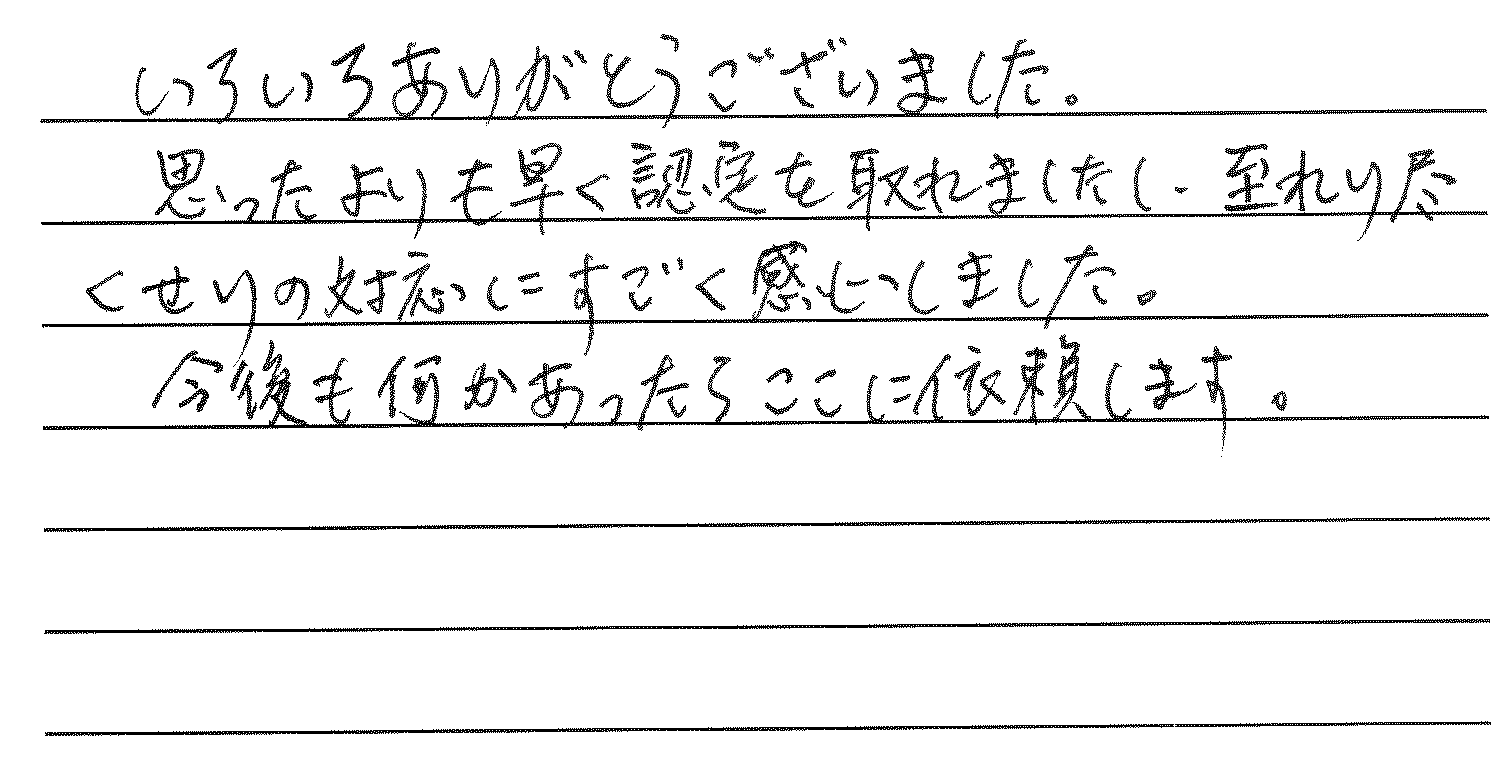 いろいろありがとうございました。
思ったよりも早く認定を取れましたし、至れり尽
くせりの対応にすごく感心しました。
今後も何かあったらここに依頼します。